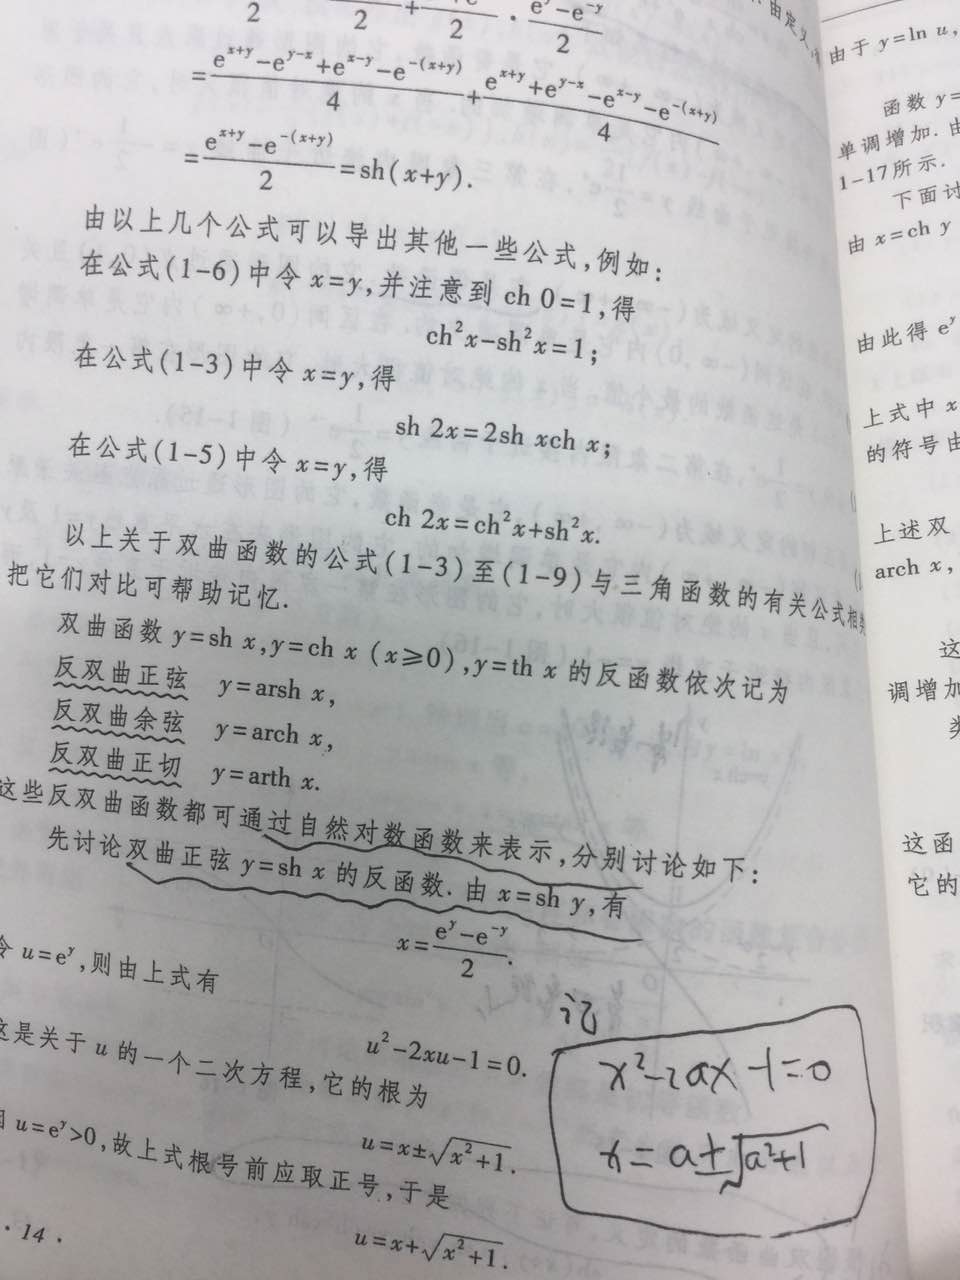 =\frac{e^{x+y}-e^{y-x}+e^{x-y}-e^{-(x+y)}}{4}+\frac{e^{x+y}+e^{y-x}-e^{x-y}-e^{-(x+y)}}{4}
=\frac{e^{x+y}-e^{-(x+y)}}{2}=sh(x+y).
由以上几个公式可以导出其他一些公式,例如:
在公式(1-6)中令 x=y,并注意到 ch 0=1,得
ch²x-sh²x=1;
在公式(1-3)中令 x=y,得
sh 2x=2sh xch x;
在公式(1-5)中令 x=y,得
ch 2x=ch²x+sh²x.
以上关于双曲函数的公式(1-3)至(1-9)与三角函数的有关公式相类
把它们对比可帮助记忆.
双曲函数 y=sh x,y=ch x (x≥0),y=th x 的反函数依次记为
反双曲正弦 y=arsh x,
反双曲余弦 y=arch x,
反双曲正切 y=arth x.
这些反双曲函数都可通过自然对数函数来表示,分别讨论如下:
先讨论双曲正弦 y=sh x 的反函数. 由 x=sh y,有
x=\frac{e^y-e^{-y}}{2}.
令 u=e^y,则由上式有
u²-2xu-1=0.
这是关于 u 的一个二次方程,它的根为
u=x±\sqrt{x²+1}.
因 u=e^y>0,故上式根号前应取正号,于是
u=x+\sqrt{x²+1}.
· 14 ·
记
x²-2ax-1=0
x=a±\sqrt{a²+1}
由于 y=ln u,
函数 y=
单调增加. 由
1-17所示.
下面讨
由 x=ch y
由此得 e^y
上式中 x
的符号由
上述双
arch x,
这
调增加
类
这函
它的